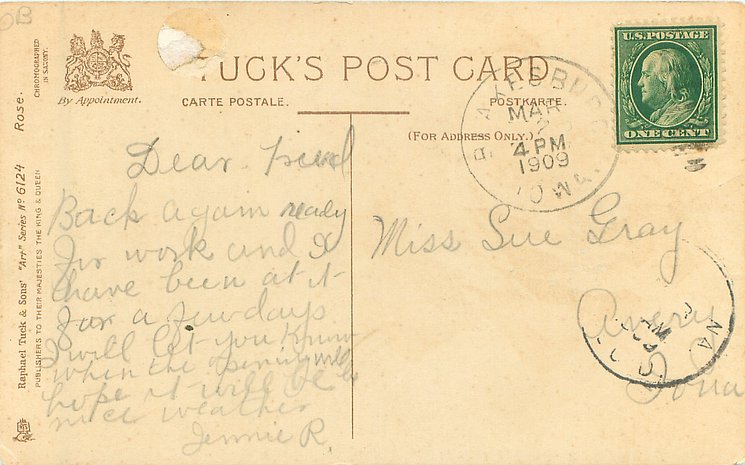 OB
CHROMOGRAPHED
IN SAXONY.
By Appointment.
TUCK'S POST CARD
CARTE POSTALE.
POSTKARTE.
(FOR ADDRESS ONLY.)
U.S. POSTAGE
ONE CENT
MAR
4 PM
1909
IOWA.
Raphael Tuck & Sons' "Art" Series No 6124 Rose.
PUBLISHERS TO THEIR MAJESTIES THE KING & QUEEN
Dear friend
Back again ready
for work and I
have been at it
for a few days
I will let you know
when the opening will be
hope it will be
nice weather
Jennie R.
Miss Sue Gray
Avery
Iowa
AM